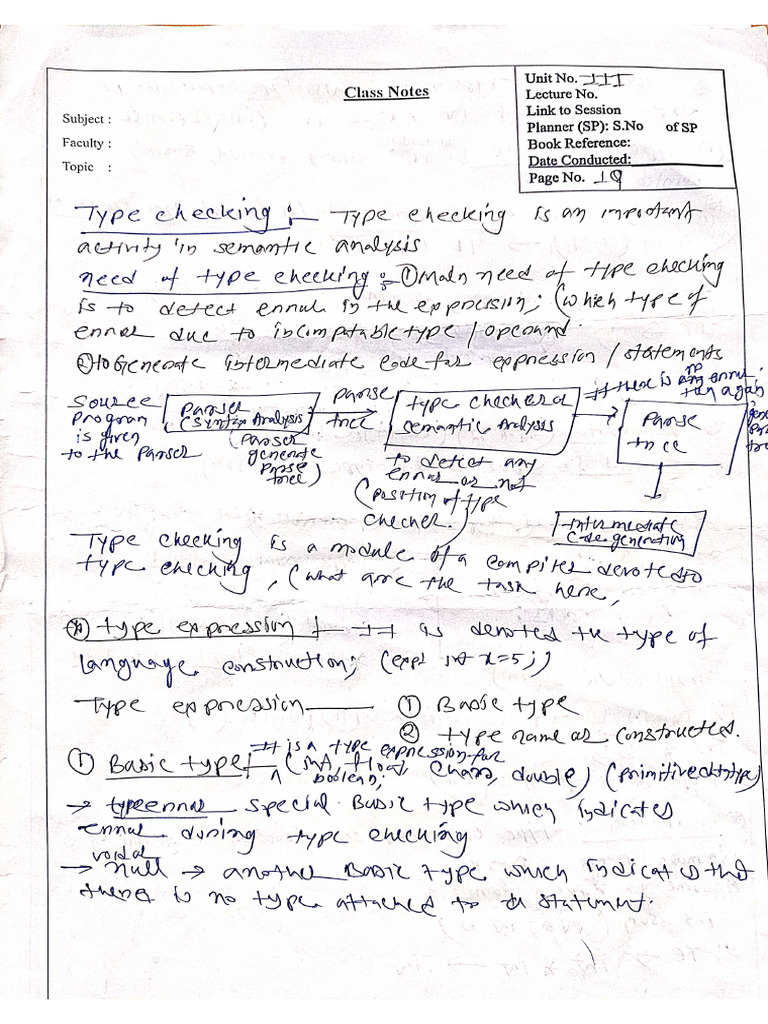 Class Notes
Unit No. III
Lecture No.
Link to Session
Planner (SP): S.No of SP
Book Reference:
Date Conducted:
Page No. 19
Subject :
Faculty :
Topic :
Type checking :- Type checking is an important
activity in semantic analysis
need of type checking :- ① Main need of type checking
is to detect error in the expression; (which type of
error due to incompatable type / operand.
② to Generate intermediate code for expression / statements
Source program is given to the Parser
Parser (Syntax Analysis)
(Parser generate Parse tree)
parse tree
type checker a semantic Analysis
to detect any error or not
(position of type checker.)
If there is no any error. then again
generate Parse tree
Parse tree
Intermediate Code generation
Type checking is a module of a compiler devoted to
type checking, (what are the task here,
type expression :- It is denoted the type of
language construction; (exp: int x=5;)
Type expression —— ① Basic type
② type name or constructed.
① Basic type :- It is a type expression for
(int, float, chars, double) (primitive datatype)
boolean,
→ type error special Basic type which indicates
error during type checking
void or
→ null → another Basic type which indicates that
there is no type attached to the statement.